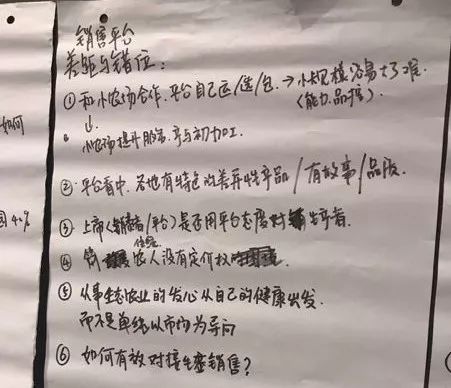 销售平台
差距与错位:
① 和小农场合作.平台自己运/选/包.→小规模容易大了难.
(能力.品控).
↓.
小农场提升服务.参与初加工.
② 平台看中.各地有特色的差异性产品/有故事/品质.
③ 上帝(销售/平台)是否用平台态度对生产者.
④ 农人没有定价权
⑤ 从事生态农业的发心从自己的健康出发.
而不是单纯以市场为导向
⑥ 如何有效对接生产销售?
如何
4%